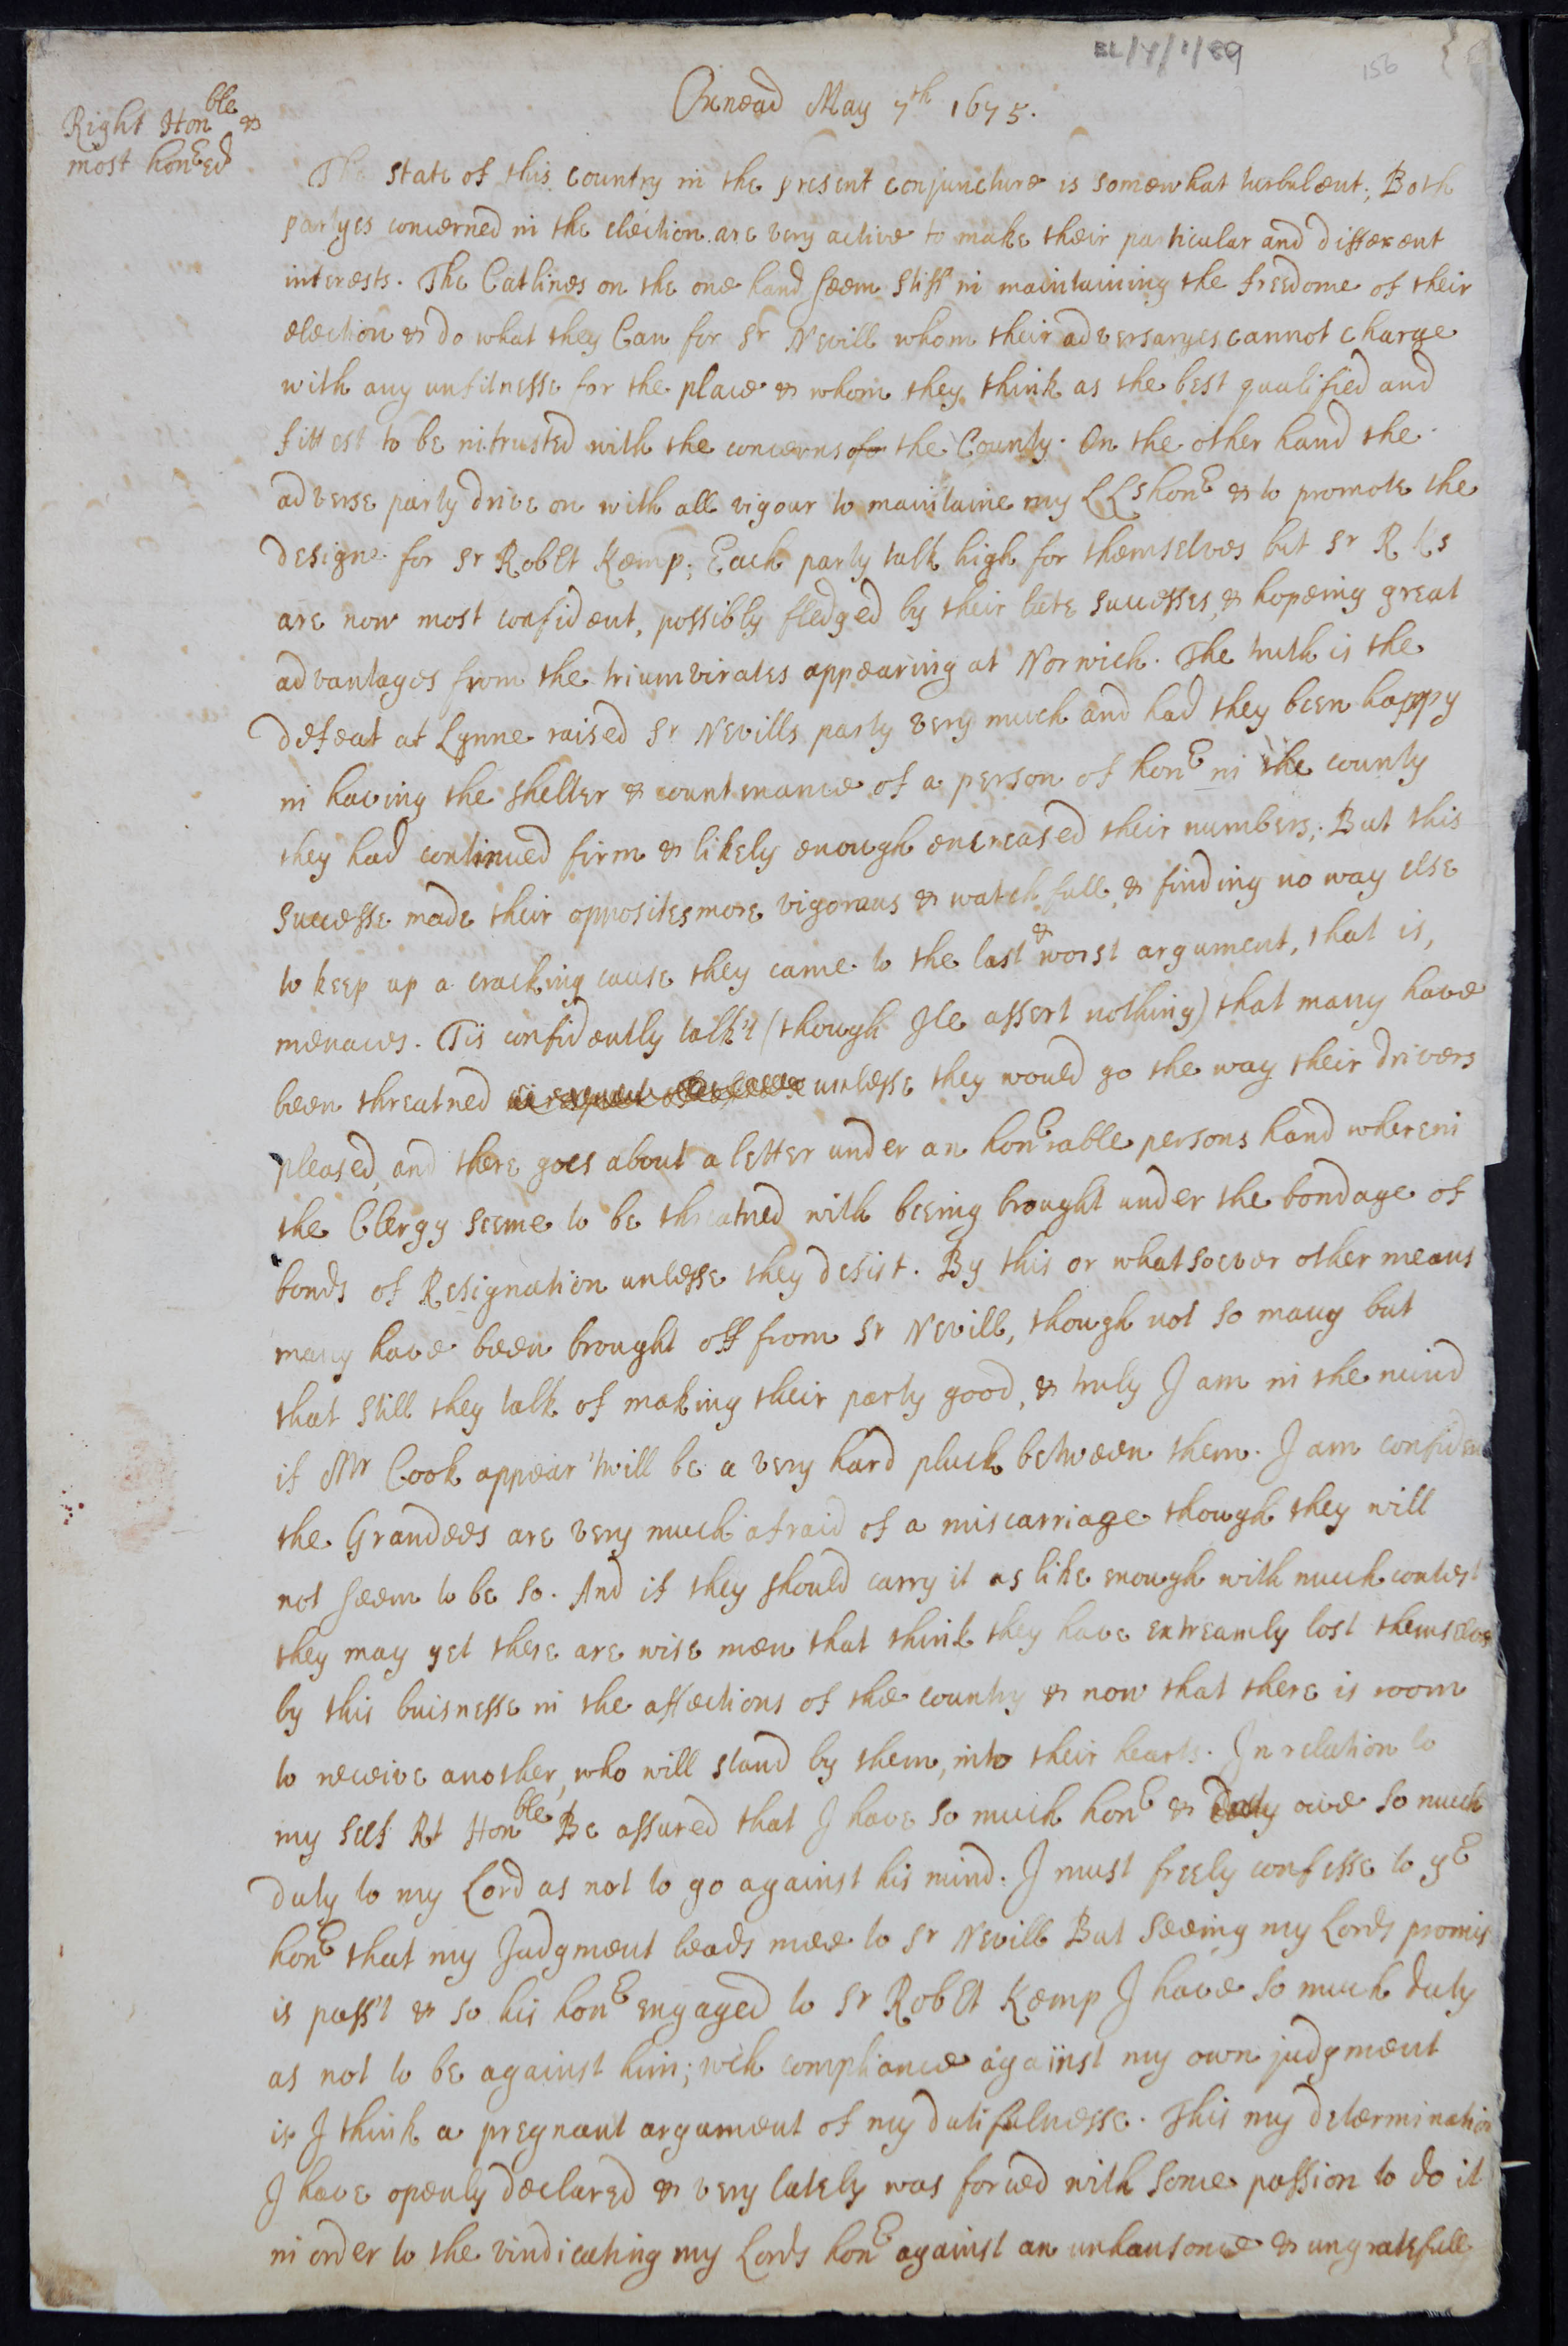 BL/Y/1/89
156
Oxnead May 7th 1675.
Right Honble &
most honred
The state of this country in the present conjuncture is somewhat turbulent; Both
partyes concerned in the election are very active to make their particular and different
interests. The Catlines on the one hand seem stiff in maintaining the freedome of their
election & do what they Can for Sr Nevill whom their adversaryes cannot charge
with any unfitnesse for the place & whom they think as the best qualified and
fittest to be intrusted with the concerns of the County. On the other hand the
adverse party drive on with all vigour to maintaine my LLs honr & to promote the
designe for Sr Robert Kemp; Each party talk high for themselves but Sr R Ks
are now most confident, possibly fledged by their late successes, & hopeing great
advantages from the triumvirates appearing at Norwich. The truth is the
defeat at Lynne raised Sr Nevills party very much and had they been happy
in having the shelter & countenance of a person of honr in the county
they had continued firm & likely enough encreased their numbers; But this
successe made their opposites more vigorous & watchfull, & finding no way else
to keep up a cracking cause they came to the last & worst argument, that is,
menaces. Tis confidently talk't (though Ile assert nothing) that many have
been threatned unlesse they would go the way their drivers
pleased, and there goes about a letter under an honrable persons hand wherein
the Clergy seeme to be threatned with beeing brought under the bondage of
bonds of Resignation unlesse they desist. By this or whatsoever other means
many have been brought off from Sr Nevill, though not so many but
that still they talk of making their party good, & truly I am in the mind
if Mr Cook appear 'twill be a very hard pluck between them. I am confident
the Grandees are very much afraid of a miscarriage though they will
not seem to be so. And if they should carry it as like enough with much contest
they may yet there are wise men that think they have extreamly lost themselves
by this buisnesse in the affections of the country & now that there is room
to receive another, who will stand by them, into their hearts. In relation to
my self Rt Honble Be assured that I have so much honr & owe so much
duty to my Lord as not to go against his mind. I must freely confesse to yr
honr that my Judgment leads mee to Sr Nevill But seeing my Lords promis
is pass't & so his honr engaged to Sr Robert Kemp I have so much duty
as not to be against him; wch compliance against my own judgment
is I think a pregnant argument of my dutifulnesse. This my determination
I have openly declared & very lately was forced with some passion to do it
in order to the vindicating my Lords honr against an unhansome & ungratefull